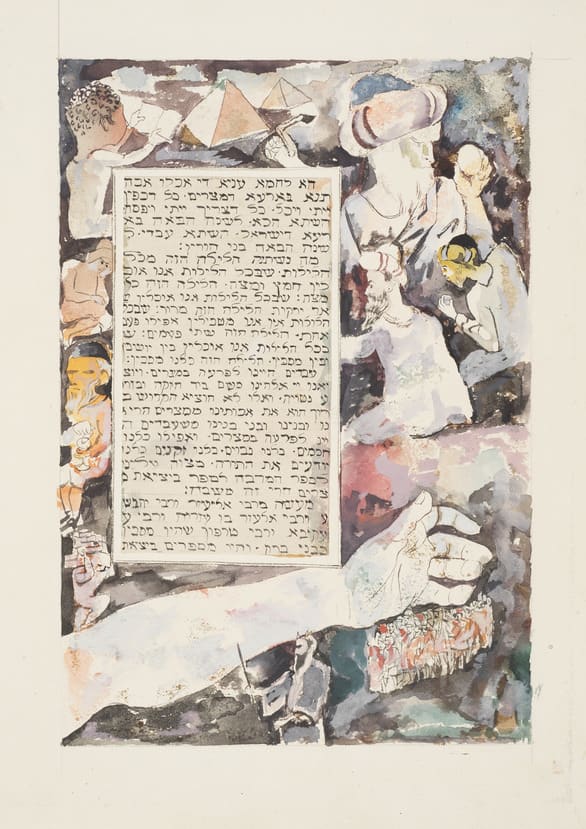 הא לחמא עניא די אכלו אבה
תנא בארעא דמצרים· כל דכפין
ייתי ויכל· כל דצריך ייתי ויפסח
השתא הכא· לשנה הבאה בא
רעא דישראל· השתא עבדי· ל
שנה הבאה בני חורין:
מה נשתנה הלילה הזה מכל
הלילות· שבכל הלילות אנו אוכ
לין חמץ ומצה· הלילה הזה כל
מצה: שבכל הלילות אנו אוכלין ש
אר ירקות הלילה הזה מרור: שבכל
הלילות אין אנו מטבילין אפילו פעם
אחת· הלילה הזה שתי פעמים: ש
בכל הלילות אנו אוכלין בין יושבין
ובין מסבין· הלילה הזה כלנו מסבין:
עבדים היינו לפרעה במצרים· ויוצ
יאנו יי אלהינו משם ביד חזקה ובזר
ע נטויה· ואלו לא הוציא הקדוש ב
רוך הוא את אבותינו ממצרים הרי א
נו ובנינו ובני בנינו משעבדים ה
ינו לפרעה במצרים· ואפילו כלנו
חכמים· כלנו נבונים· כלנו זקנים כלנו
יודעים את התורה· מצוה עלינו
לספר המרבה לספר ביציאת מ
צרים הרי זה משובח:
מעשה ברבי אליעזר ורבי יהוש
ע ורבי אלעזר בן עזריה ורבי ע
קיבא ורבי טרפון שהיו מסבין
בבני ברק· והיו מספרים ביציאת